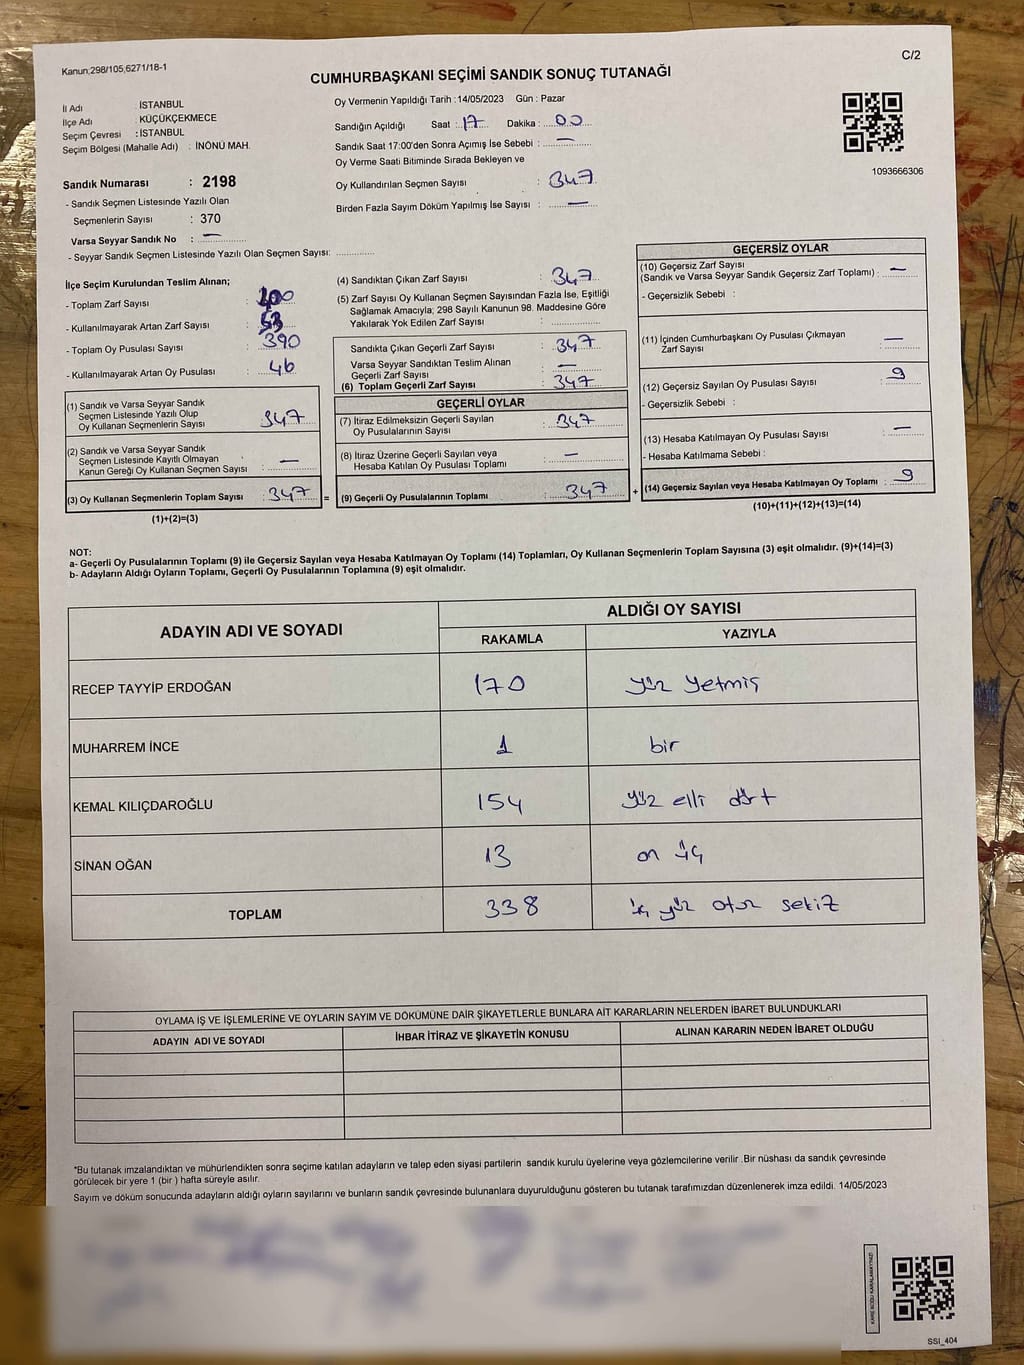 Kanun;298/105,6271/18-1
C/2
CUMHURBAŞKANI SEÇİMİ SANDIK SONUÇ TUTANAĞI
İl Adı : İSTANBUL
İlçe Adı : KÜÇÜKÇEKMECE
Seçim Çevresi : İSTANBUL
Seçim Bölgesi (Mahalle Adı) : İNÖNÜ MAH.
Sandık Numarası : 2198
- Sandık Seçmen Listesinde Yazılı Olan
Seçmenlerin Sayısı : 370
Varsa Seyyar Sandık No : —
- Seyyar Sandık Seçmen Listesinde Yazılı Olan Seçmen Sayısı:
Oy Vermenin Yapıldığı Tarih :14/05/2023 Gün : Pazar
Sandığın Açıldığı Saat : 17 Dakika : 00
Sandık Saat 17:00'den Sonra Açımış İse Sebebi : —
Oy Verme Saati Bitiminde Sırada Bekleyen ve
Oy Kullandırılan Seçmen Sayısı : 347
Birden Fazla Sayım Döküm Yapılmış İse Sayısı : —
1093666306
İlçe Seçim Kurulundan Teslim Alınan;
- Toplam Zarf Sayısı : 400
- Kullanılmayarak Artan Zarf Sayısı : 53
- Toplam Oy Pusulası Sayısı : 390
- Kullanılmayarak Artan Oy Pusulası : 46
(1) Sandık ve Varsa Seyyar Sandık
Seçmen Listesinde Yazılı Olup
Oy Kullanan Seçmenlerin Sayısı : 347
(2) Sandık ve Varsa Seyyar Sandık
Seçmen Listesinde Kayıtlı Olmayan
Kanun Gereği Oy Kullanan Seçmen Sayısı : —
(3) Oy Kullanan Seçmenlerin Toplam Sayısı : 347 =
(1)+(2)=(3)
(4) Sandıktan Çıkan Zarf Sayısı : 347
(5) Zarf Sayısı Oy Kullanan Seçmen Sayısından Fazla İse, Eşitliği
Sağlamak Amacıyla; 298 Sayılı Kanunun 98. Maddesine Göre
Yakılarak Yok Edilen Zarf Sayısı :
Sandıkta Çıkan Geçerli Zarf Sayısı : 347
Varsa Seyyar Sandıktan Teslim Alınan
Geçerli Zarf Sayısı : —
(6) Toplam Geçerli Zarf Sayısı : 347
GEÇERLİ OYLAR
(7) İtiraz Edilmeksizin Geçerli Sayılan
Oy Pusulalarının Sayısı : 347
(8) İtiraz Üzerine Geçerli Sayılan veya
Hesaba Katılan Oy Pusulası Toplamı : —
(9) Geçerli Oy Pusulalarının Toplamı : 347 +
GEÇERSİZ OYLAR
(10) Geçersiz Zarf Sayısı
(Sandık ve Varsa Seyyar Sandık Geçersiz Zarf Toplamı) : —
- Geçersizlik Sebebi :
(11) İçinden Cumhurbaşkanı Oy Pusulası Çıkmayan
Zarf Sayısı : —
(12) Geçersiz Sayılan Oy Pusulası Sayısı : 9
- Geçersizlik Sebebi :
(13) Hesaba Katılmayan Oy Pusulası Sayısı : —
- Hesaba Katılmama Sebebi :
(14) Geçersiz Sayılan veya Hesaba Katılmayan Oy Toplamı : 9
(10)+(11)+(12)+(13)=(14)
NOT:
a- Geçerli Oy Pusulalarının Toplamı (9) ile Geçersiz Sayılan veya Hesaba Katılmayan Oy Toplamı (14) Toplamları, Oy Kullanan Seçmenlerin Toplam Sayısına (3) eşit olmalıdır. (9)+(14)=(3)
b- Adayların Aldığı Oyların Toplamı, Geçerli Oy Pusulalarının Toplamına (9) eşit olmalıdır.
ADAYIN ADI VE SOYADI ALDIĞI OY SAYISI
RAKAMLA YAZIYLA
RECEP TAYYİP ERDOĞAN 170 yüz yetmiş
MUHARREM İNCE 1 bir
KEMAL KILIÇDAROĞLU 154 yüz elli dört
SİNAN OĞAN 13 on üç
TOPLAM 338 yüz otuz sekiz
OYLAMA İŞ VE İŞLEMLERİNE VE OYLARIN SAYIM VE DÖKÜMÜNE DAİR ŞİKAYETLERLE BUNLARA AİT KARARLARIN NELERDEN İBARET BULUNDUKLARI
ADAYIN ADI VE SOYADI İHBAR İTİRAZ VE ŞİKAYETİN KONUSU ALINAN KARARIN NEDEN İBARET OLDUĞU
*Bu tutanak imzalandıktan ve mühürlendikten sonra seçime katılan adayların ve talep eden siyasi partilerin sandık kurulu üyelerine veya gözlemcilerine verilir .Bir nüshası da sandık çevresinde
görülecek bir yere 1 (bir ) hafta süreyle asılır.
Sayım ve döküm sonucunda adayların aldığı oyların sayılarını ve bunların sandık çevresinde bulunanlara duyurulduğunu gösteren bu tutanak tarafımızdan düzenlenerek imza edildi. 14/05/2023
KARE KODU KARALAMAYINIZ!
SSI_404